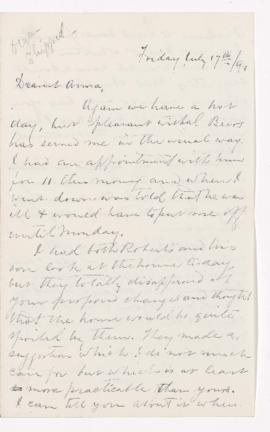 Organ
Shipped.
Friday, July 17th/9
Dearest Anna,
Again we have a hot
day, but pleasant withal. Beers
has served me in the usual way.
I had an appointment with him
for 11 this morng and when I
went down was told that he was
ill & would have to put me off
until Monday.
I had both Roberts and his
son look at the house today
but they totally disapproved of
your proposed changes and thought
that the home would be quite
spoiled by them. They made a
suggestion which I do not much
care for but which is at least
more practicable than yours.
I can tell you about it when